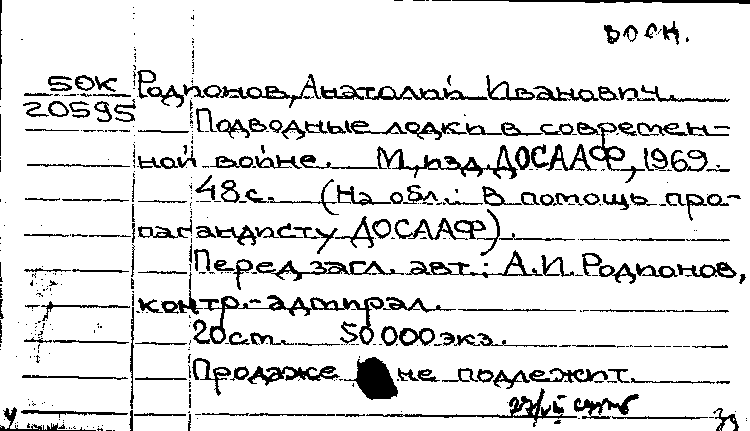 воен.
50К Родионов, Анатолий Иванович.
20595 Подводные лодки в современ-
ной войне. М., изд. ДОСААФ, 1969.
48с. (На обл.: В помощь про-
пагандисту ДОСААФ).
Перед загл. авт.: А.И. Родионов,
контр.-адмирал.
20 ст. 50 000 экз.
Продаже не подлежит.